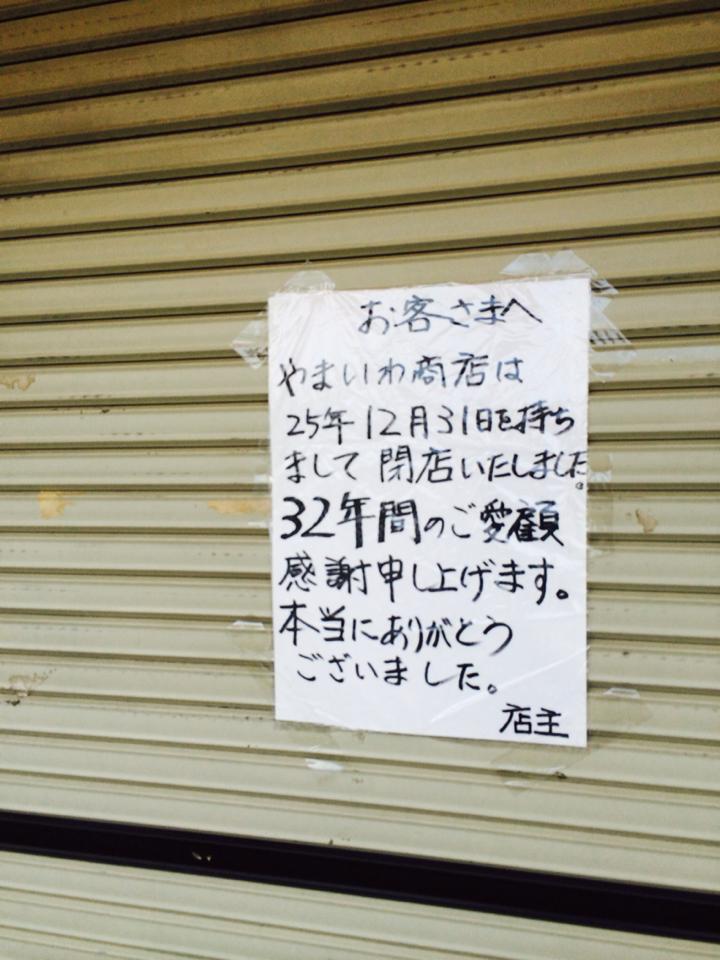 お客さまへ
やまいわ商店は
25年12月31日を持ち
まして閉店いたしました。
32年間のご愛顧
感謝申し上げます。
本当にありがとう
ございました。
店主